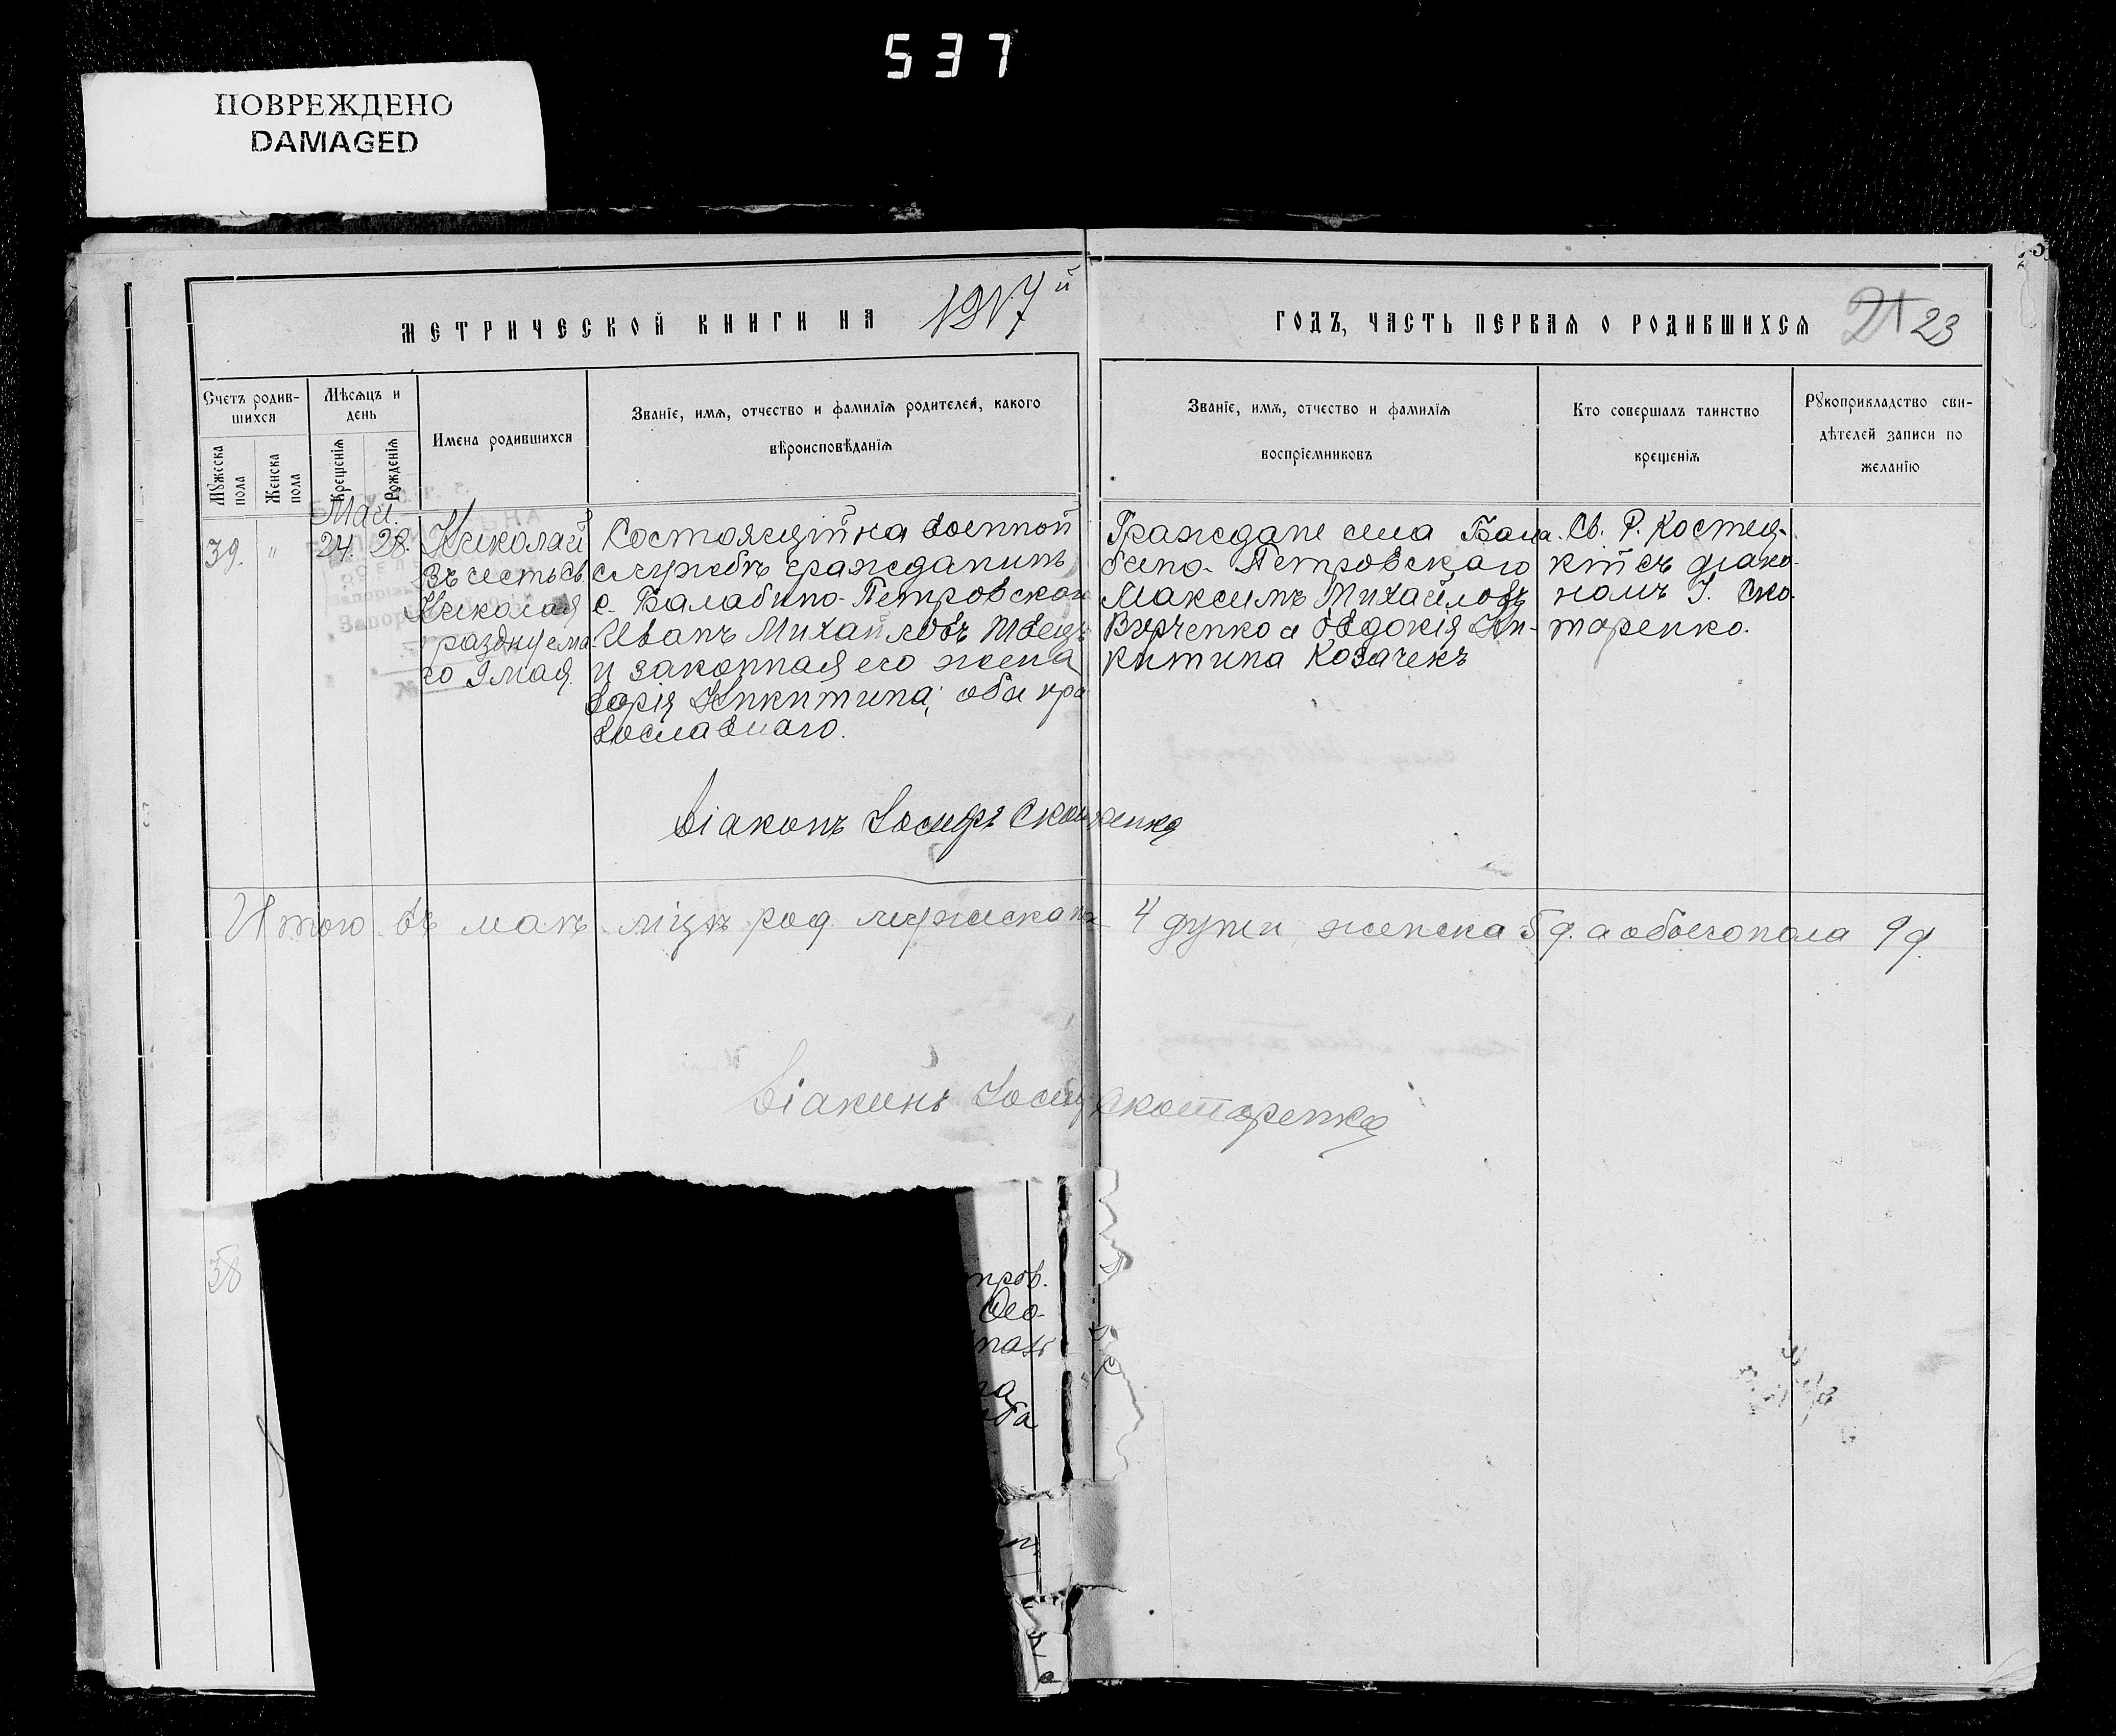 537
ПОВРЕЖДЕНО
DAMAGED
МЕТРИЧЕСКОЙ КНИГИ НА 1917й
ГОДЪ, ЧАСТЬ ПЕРВАЯ О РОДИВШИХСЯ 21 23
Счетъ родив-
шихся
Мужеска
пола
Женска
пола
Мѣсяцъ и
день
Крещенія
Рожденія
Имена родившихся
Званіе, имя, отчество и фамилія родителей, какого
вѣроисповѣданія
Званіе, имя, отчество и фамилія
воспріемниковъ
Кто совершалъ таинство
крещенія
Рукоприкладство сви-
дѣтелей записи по
желанію
Май.
39. " 24. 28.
Николай
Въ честь Св.
Николая
праздну­ема-
го 9 мая.
Состоящій на военной
службѣ гражданинъ
с. Балабино-Петровскаго
Иванъ Михайловъ Швецъ
и законная его жена
Дарія Никитина; оба пра
вославнаго.
Граждане села Бала-
бино-Петровскаго
Максимъ Михайловъ
Никитина Козачекъ
Св. Р. Костец-
кій съ діако-
номъ І. Ско-
таренко.
Діаконъ Іосифъ Скотаренко
Итого въ маѣ мцѣ род. мужеска пол 4 души, женска 5 д. а обоего пола 9 д.
Діаконъ Іосиф Скотаренко
38
тров.
Ѳео-